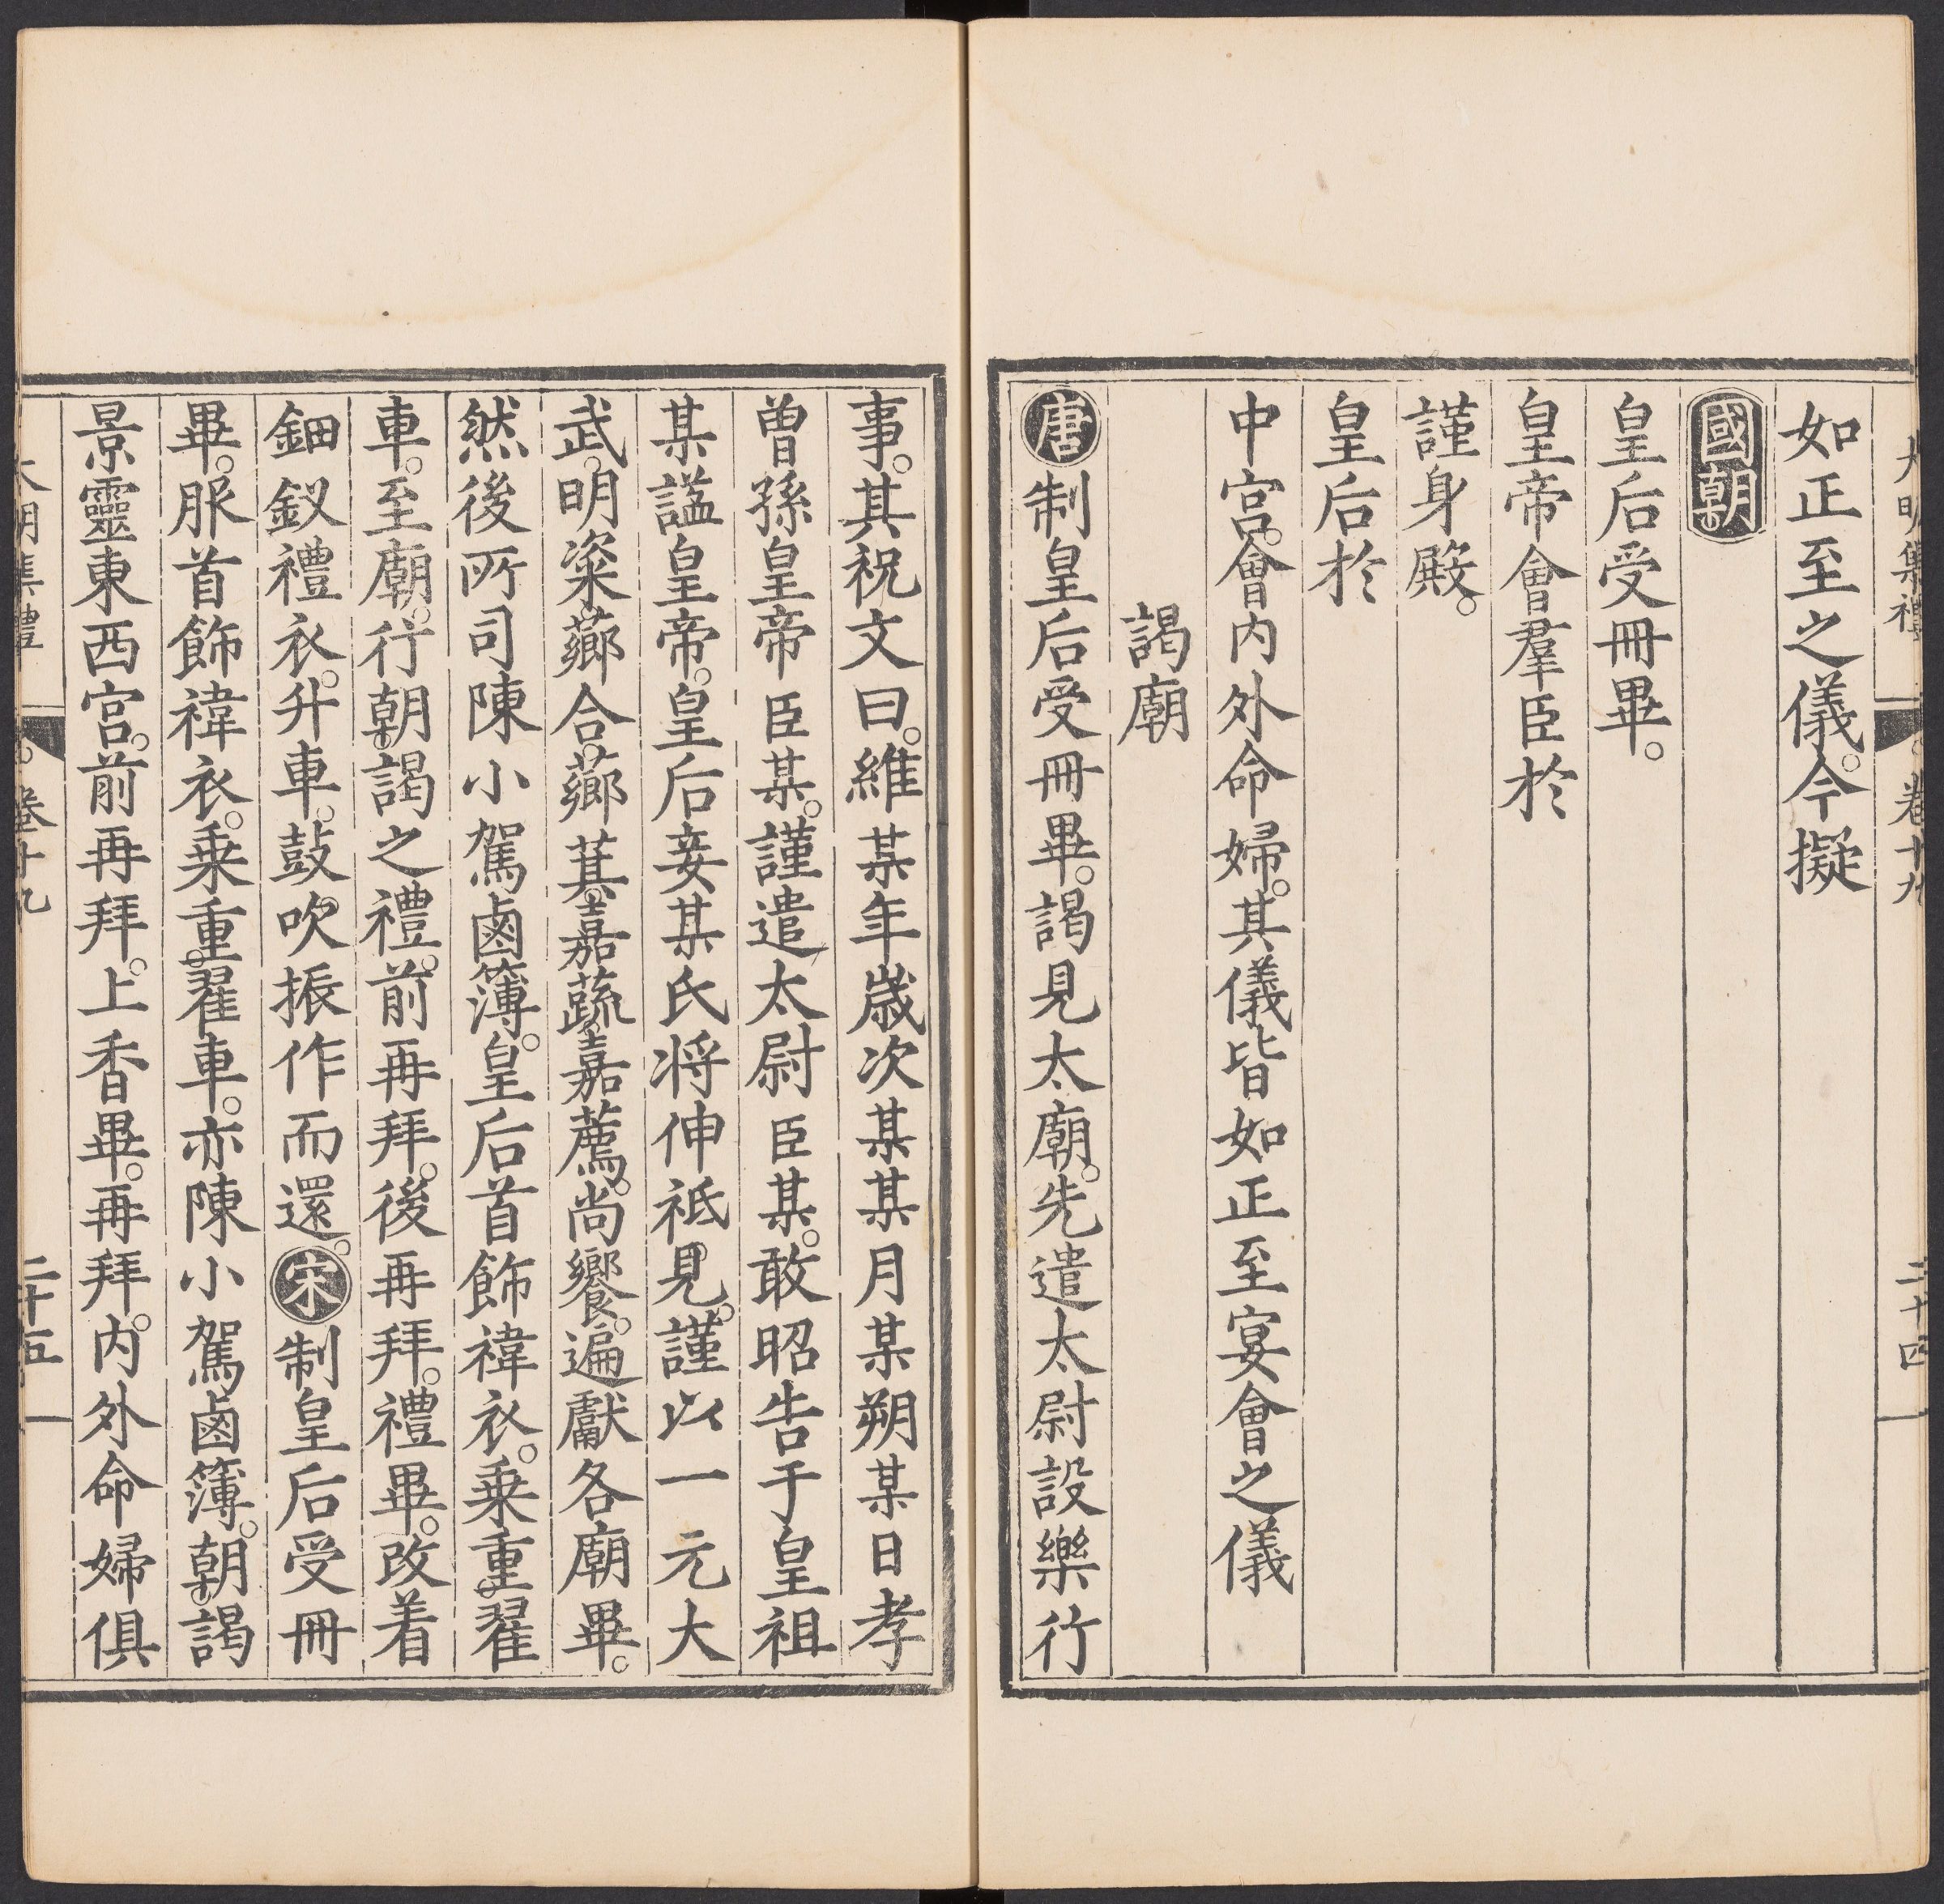 大明集禮 卷十九 二十四
如正至之儀。今擬
國朝
皇后受冊畢。
皇帝會羣臣於
謹身殿。
皇后於
中宮。會內外命婦。其儀皆如正至宴會之儀
謁廟
唐制皇后受冊畢。謁見太廟。先遣太尉設樂行
事。其祝文曰。維某年歲次某某月某朔某日孝
曾孫皇帝臣某。謹遣太尉臣某。敢昭告于皇祖
某謚皇帝。皇后妾某氏将伸祗見。謹以一元大
武。明粢。薌合。薌萁。嘉蔬。嘉薦。尚饗。遍獻各廟畢。
然後所司陳小駕鹵簿。皇后首飾褘衣。乗重翟
車。至廟。行朝謁之禮。前再拜。後再拜。禮畢。改着
鈿釵禮衣。升車。鼓吹振作而還。宋制皇后受冊
畢。服首飾褘衣。乗重翟車。亦陳小駕鹵簿。朝謁
景靈東西宮。前再拜。上香畢。再拜。內外命婦俱
大明集禮 卷十九 二十五